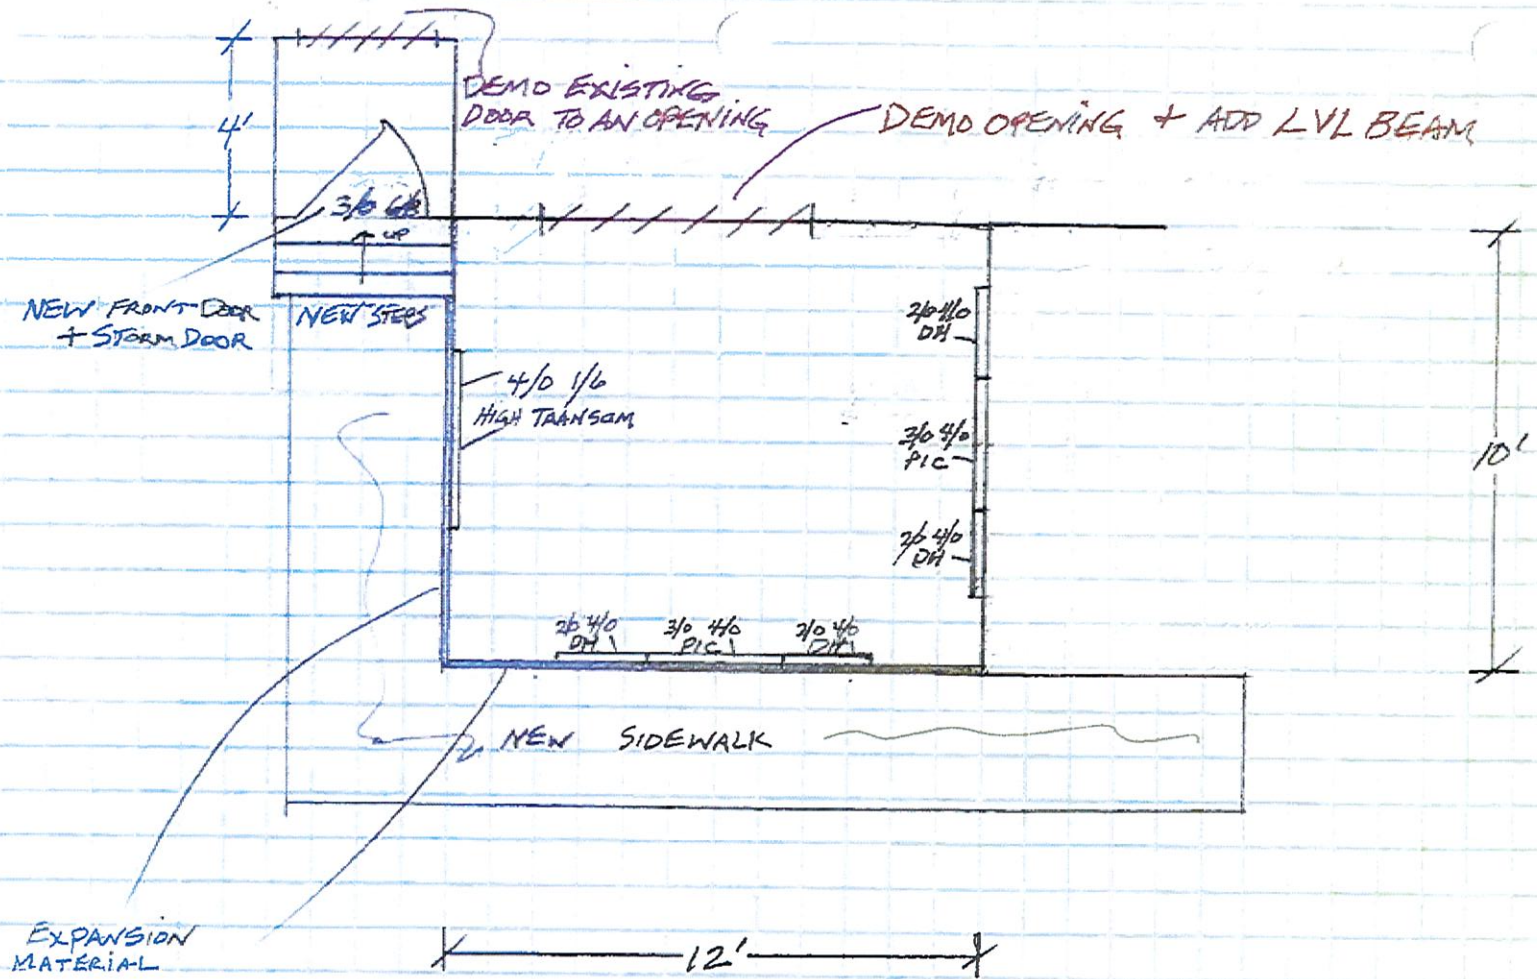 4'
DEMO EXISTING
DOOR TO AN OPENING
DEMO OPENING + ADD LVL BEAM
3/0 6/8
UP
NEW FRONT DOOR
+ STORM DOOR
NEW STEPS
2/0 4/0
DH
4/0 1/6
HIGH TRANSOM
3/0 4/0
PIC
10'
2/0 4/0
DH
2/0 4/0
DH
3/0 4/0
PIC
2/0 4/0
DH
NEW SIDEWALK
EXPANSION
MATERIAL
12'